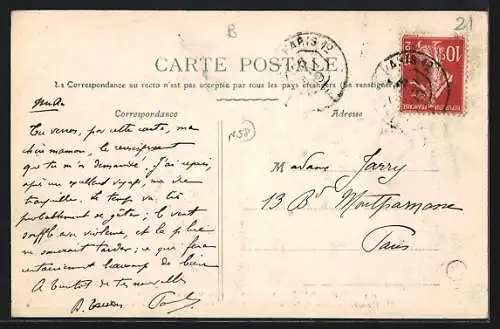 B
21
PARIS 12
CARTE POSTALE
La Correspondance au recto n'est pas acceptée par tous les pays étrangers (Se renseigner
Correspondance
Adresse
N58
Tu verras, par cette carte, ma
chère maman, le renseignement
que tu m'as demandé. J'ai
après un excellent voyage,
tranquilles. Le temps va, très
probablement se gâter; le vent
souffle avec violence, et la pluie
ne saurait tarder; ce qui fera
certainement beaucoup de bien
A bientôt de tes nouvelles
Paul
Madame Jarry
13 Bd Montparnasse
Paris
10
REPUBLIQUE FRANÇAISE
PARIS 12